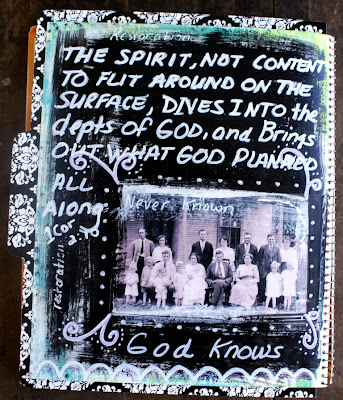 Restoration
THE SPIRIT, NOT CONTENT
TO FLIT AROUND ON THE
SURFACE, DIVES INTO the
depts of GOD, and Brings
OUT WHAT GOD PLANNED
ALL
Along
1 Cor 2
restoration
Never Known
God Knows